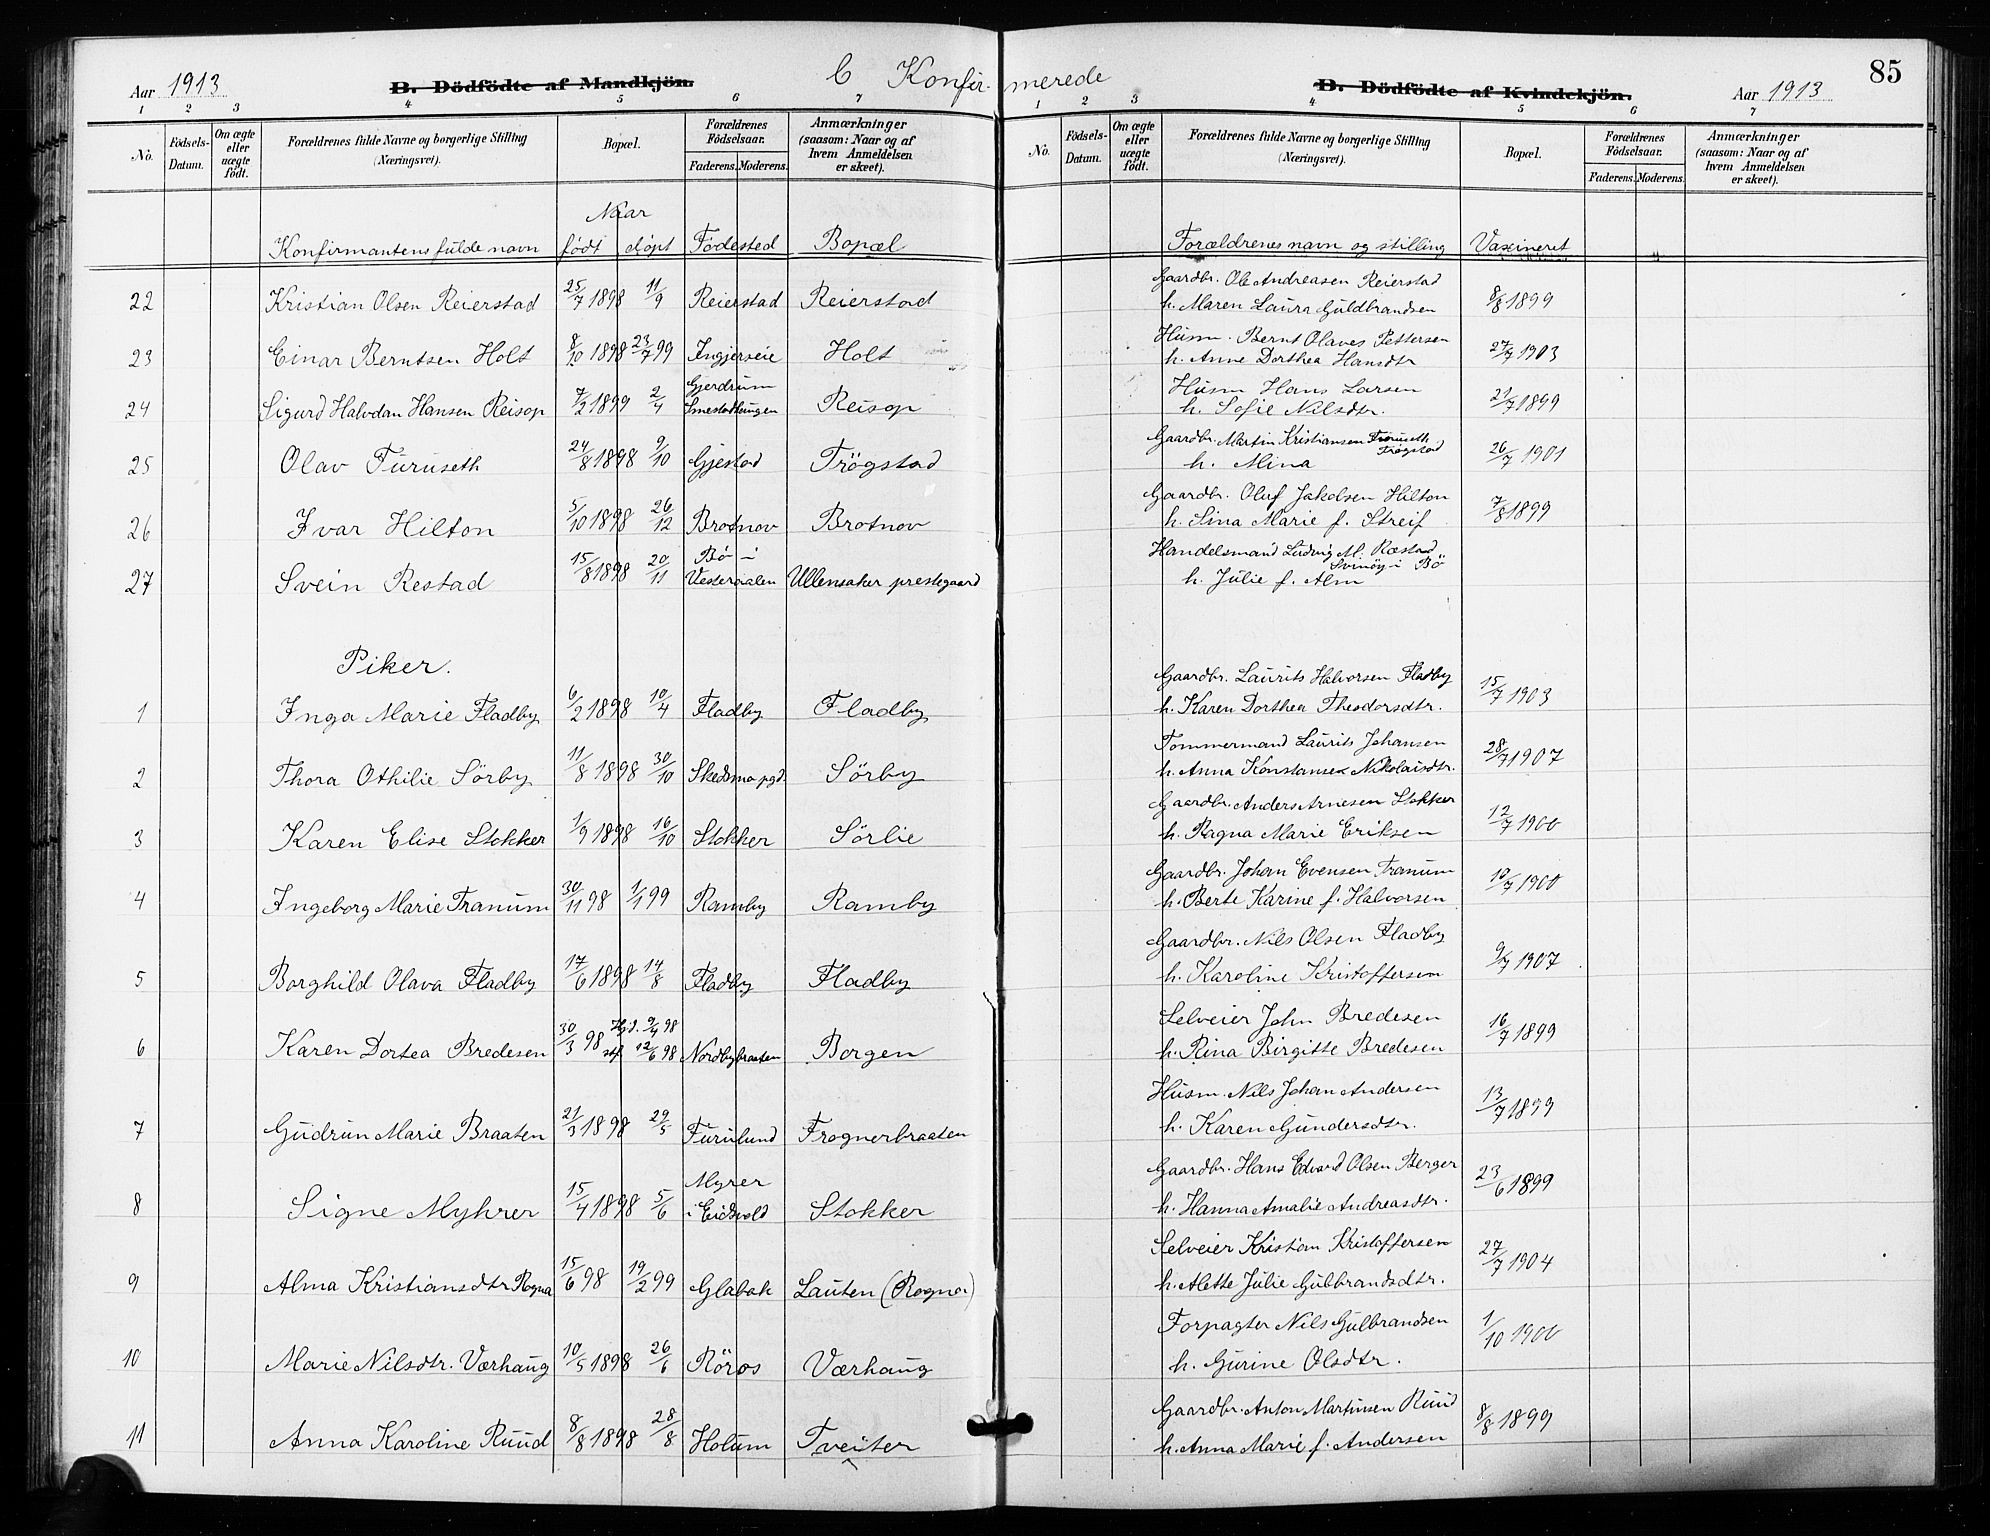 Aar 1913
B. Dödfödte af Mandkjön.
C Konfirmerede
B. Dödfödte af Kvindekjön.
Aar 1913
85
1 2 3 4 5 6 7
1 2 3 4 5 6 7
No. Födsels-Datum. Om ægte eller uægte födt. Forældrenes fulde Navne og borgerlige Stilling (Næringsvei). Bopæl. Forældrenes Födselsaar. Faderens. Moderens. Anmærkninger (saasom: Naar og af hvem Anmeldelsen er skeet).
No. Födsels-Datum. Om ægte eller uægte födt. Forældrenes fulde Navne og borgerlige Stilling (Næringsvei). Bopæl. Forældrenes Födselsaar. Faderens. Moderens. Anmærkninger (saasom: Naar og af hvem Anmeldelsen er skeet).
Naar
Konfirmantens fulde navn født døpt Fødested Bopæl Forældrenes navn og stilling Vaxineret
Gaardbr. Ole Andreasen Reierstad
22 Kristian Olsen Reierstad 25/7 1898 11/9 Reierstad Reierstad h. Maren Laura Guldbrandsen 8/8 1899
Husm. Bernt Olaves Pettersen
23 Einar Berntsen Holt 8/10 1898 23/7 99 Ingjerseie Holt h. Anne Dorthea Hansdtr 27/7 1903
Gjerdrum Husm Hans Larsen
24 Sigurd Halvdan Hansen Reisop 7/2 1899 2/4 Smestadeungen Reisop h. Sofie Nilsdtr. 21/7 1899
Gaardbr. Martin Kristiansen Furuseth Trøgstad
25 Olav Furuseth 24/8 1898 9/10 Gjestad Trögstad h. Mina 26/7 1901
Gaardbr. Oluf Jakobsen Hilton
26 Ivar Hilton 5/10 1898 26/12 Brotnov Brotnov h. Lina Marie f. Streif 7/8 1899
Bø i Handelsmand Ludvig M. Ræstad Svinöy i Bö
27 Svein Restad 15/8 1898 20/11 Vesteraalen Ullensaker prestegaard h. Julie f. Alm
Piker.
Gaardbr. Laurits Halvorsen Fladby
1 Inga Marie Fladby 6/2 1898 10/4 Fladby Fladby h. Karen Dorthea Theodorsdtr. 15/7 1903
Tommermand Laurits Johansen
2 Thora Othilie Sörby 11/8 1898 30/10 Skedsmo pgd. Sörby h. Anna Konstanse Nikolaisdtr. 28/7 1907
Gaardbr. Anders Arnesen Stokker
3 Karen Elise Stokker 1/9 1898 16/10 Stokker Sörlie h. Ragna Marie Eriksen 12/7 1900
Gaardbr. Johan Evensen Tranum
4 Ingeborg Marie Tranum 30/11 98 1/1 99 Ramby Ramby h. Berte Karine f. Halvorsen 10/7 1900
Gaardbr. Nils Olsen Fladby
5 Borghild Olava Fladby 17/6 1898 14/8 Fladby Fladby h. Karoline Kristoffersen 9/7 1907
Hjd. 9/4 98 Selveier John Bredesen
6 Karen Dortea Bredesen 30/3 98 stf. 12/6 98 Nordbybraaten Borgen h. Rina Birgitte Bredesen 16/7 1899
Husm. Nils Johan Andersen
7 Gudrun Marie Braaten 21/3 1898 29/5 Furulund Frognerbraaten h. Karen Gundersdtr. 13/7 1899
Myrer Gaardbr. Hans Edvard Olsen Berger
8 Signe Myhrer 15/4 1898 5/6 i Eidsvold Stokker h. Hanna Amalie Andreasdtr. 23/6 1899
Selveier Kristian Kristoffersen
9 Alma Kristiansdtr Rogna 15/6 98 19/2 99 Glabak Lauten (Rogna) h. Alette Julie Gulbrandsdtr. 27/7 1904
Forpagter Nils Gulbrandsen
10 Marie Nilsdtr. Værhaug 10/5 1898 26/6 Röros Værhaug h. Gurine Olsdtr. 1/10 1900
Gaardbr. Anton Martinsen Ruud
11 Anna Karoline Ruud 8/8 1898 28/8 Holum Tveiter h. Anna Marie f. Andersen 8/8 1899